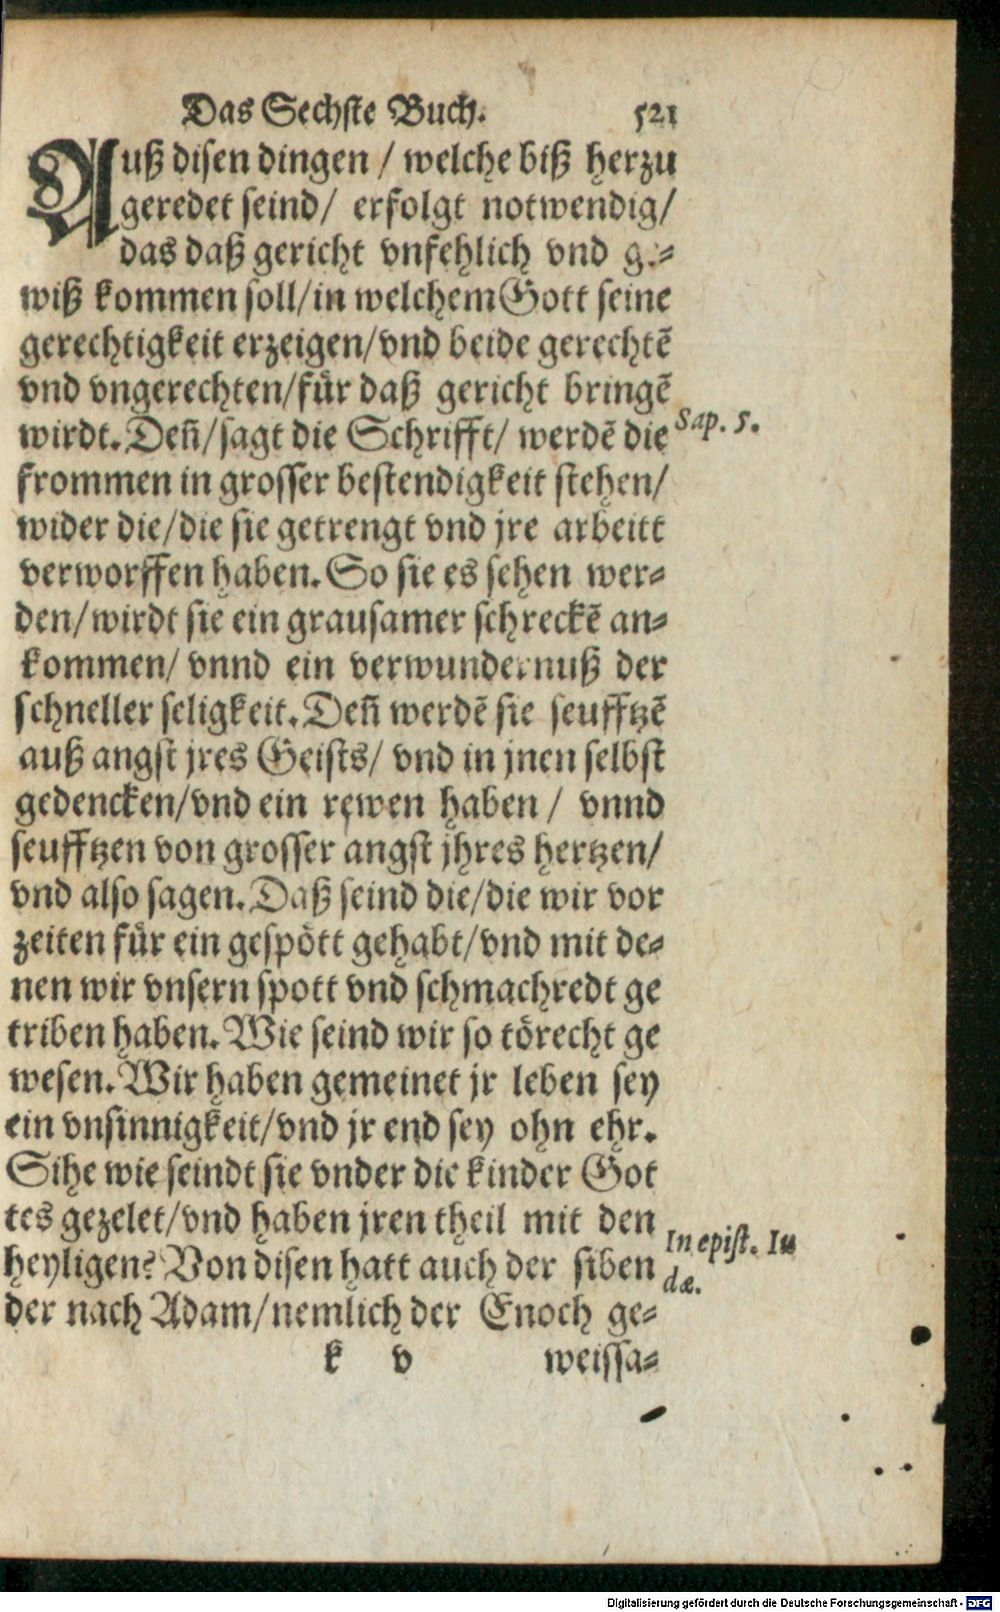 Das Sechste Buch. 521
Auß disen dingen / welche biß herzu
geredet seind/ erfolgt notwendig/
das daß gericht vnfehlich vnd ge-
wiß kommen soll/in welchem Gott seine
gerechtigkeit erzeigen/vnd beide gerechtē
vnd vngerechten/für daß gericht bringē
wirdt. Deñ/sagt die Schrifft/ werdē die
Sap. 5.
frommen in grosser bestendigkeit stehen/
wider die/die sie getrengt vnd jre arbeitt
verworffen haben. So sie es sehen wer-
den/wirdt sie ein grausamer schreckē an-
kommen/ vnnd ein verwundernuß der
schneller seligkeit. Deñ werdē sie seufftzē
auß angst jres Geists/ vnd in jnen selbst
gedencken/vnd ein rewen haben / vnnd
seufftzen von grosser angst jhres hertzen/
vnd also sagen. Daß seind die/die wir vor
zeiten für ein gespött gehabt/vnd mit de-
nen wir vnsern spott vnd schmachredt ge
triben haben. Wie seind wir so törecht ge
wesen. Wir haben gemeinet jr leben sey
ein vnsinnigkeit/vnd jr end sey ohn ehr.
Sihe wie seindt sie vnder die kinder Got
tes gezelet/vnd haben jren theil mit den
heyligen? Von disen hatt auch der siben
In epist. Iu
dæ.
der nach Adam/nemlich der Enoch ge-
k v weissa-
Digitalisierung gefördert durch die Deutsche Forschungsgemeinschaft - DFG